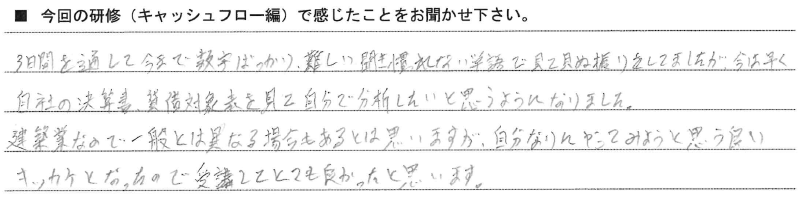 ■ 今回の研修（キャッシュフロー編）で感じたことをお聞かせ下さい。
3日間を通して今まで数字ばっかり、難しい聞き慣れない単語で見て見ぬ振りをしてましたが、今は早く
自社の決算書、貸借対象表を見て自分で分析したいと思うようになりました。
建築業なので一般とは異なる場合もあるとは思いますが、自分なりにやってみようと思う良い
キッカケとなったので受講してとても良かったと思います。